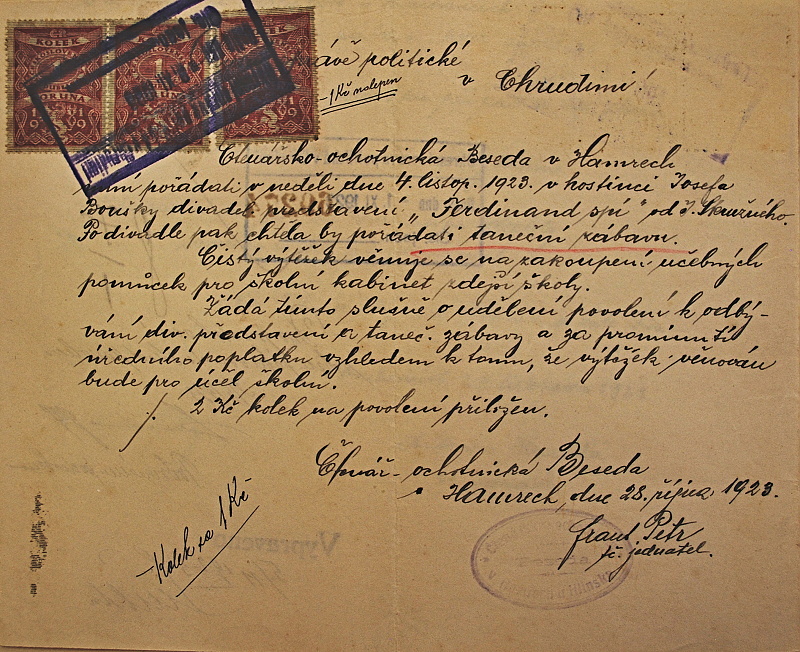 KOLEK
KORUNA
1919
1
1919
ávě politické
v Chrudimi!
1 Kč nalepen
Čtenářsko-ochotnická Beseda v Hamrech
míní pořádati v neděli dne 4. listop. 1923. v hostinci Josefa
Boušky divadel. představení "Ferdinand spí" od J. Skružného.
Po divadle pak chtěla by pořádati taneční zábavu.
Čistý výtěžek věnuje se na zakoupení učebných
pomůcek pro školní kabinet zdejší školy.
Žádá tímto slušně o udělení povolení k odbý-
vání div. představení a taneč. zábavy a za prominutí
úředního poplatku vzhledem k tomu, že výtěžek věnován
bude pro účel školní.
2 Kč kolek na povolení přiložen.
Čtenář-ochotnická Beseda
Hamrech, dne 28. října 1923.
Frant Petr
tč. jednatel.
Kolek za 1 Kč
Beseda
Vypraveno